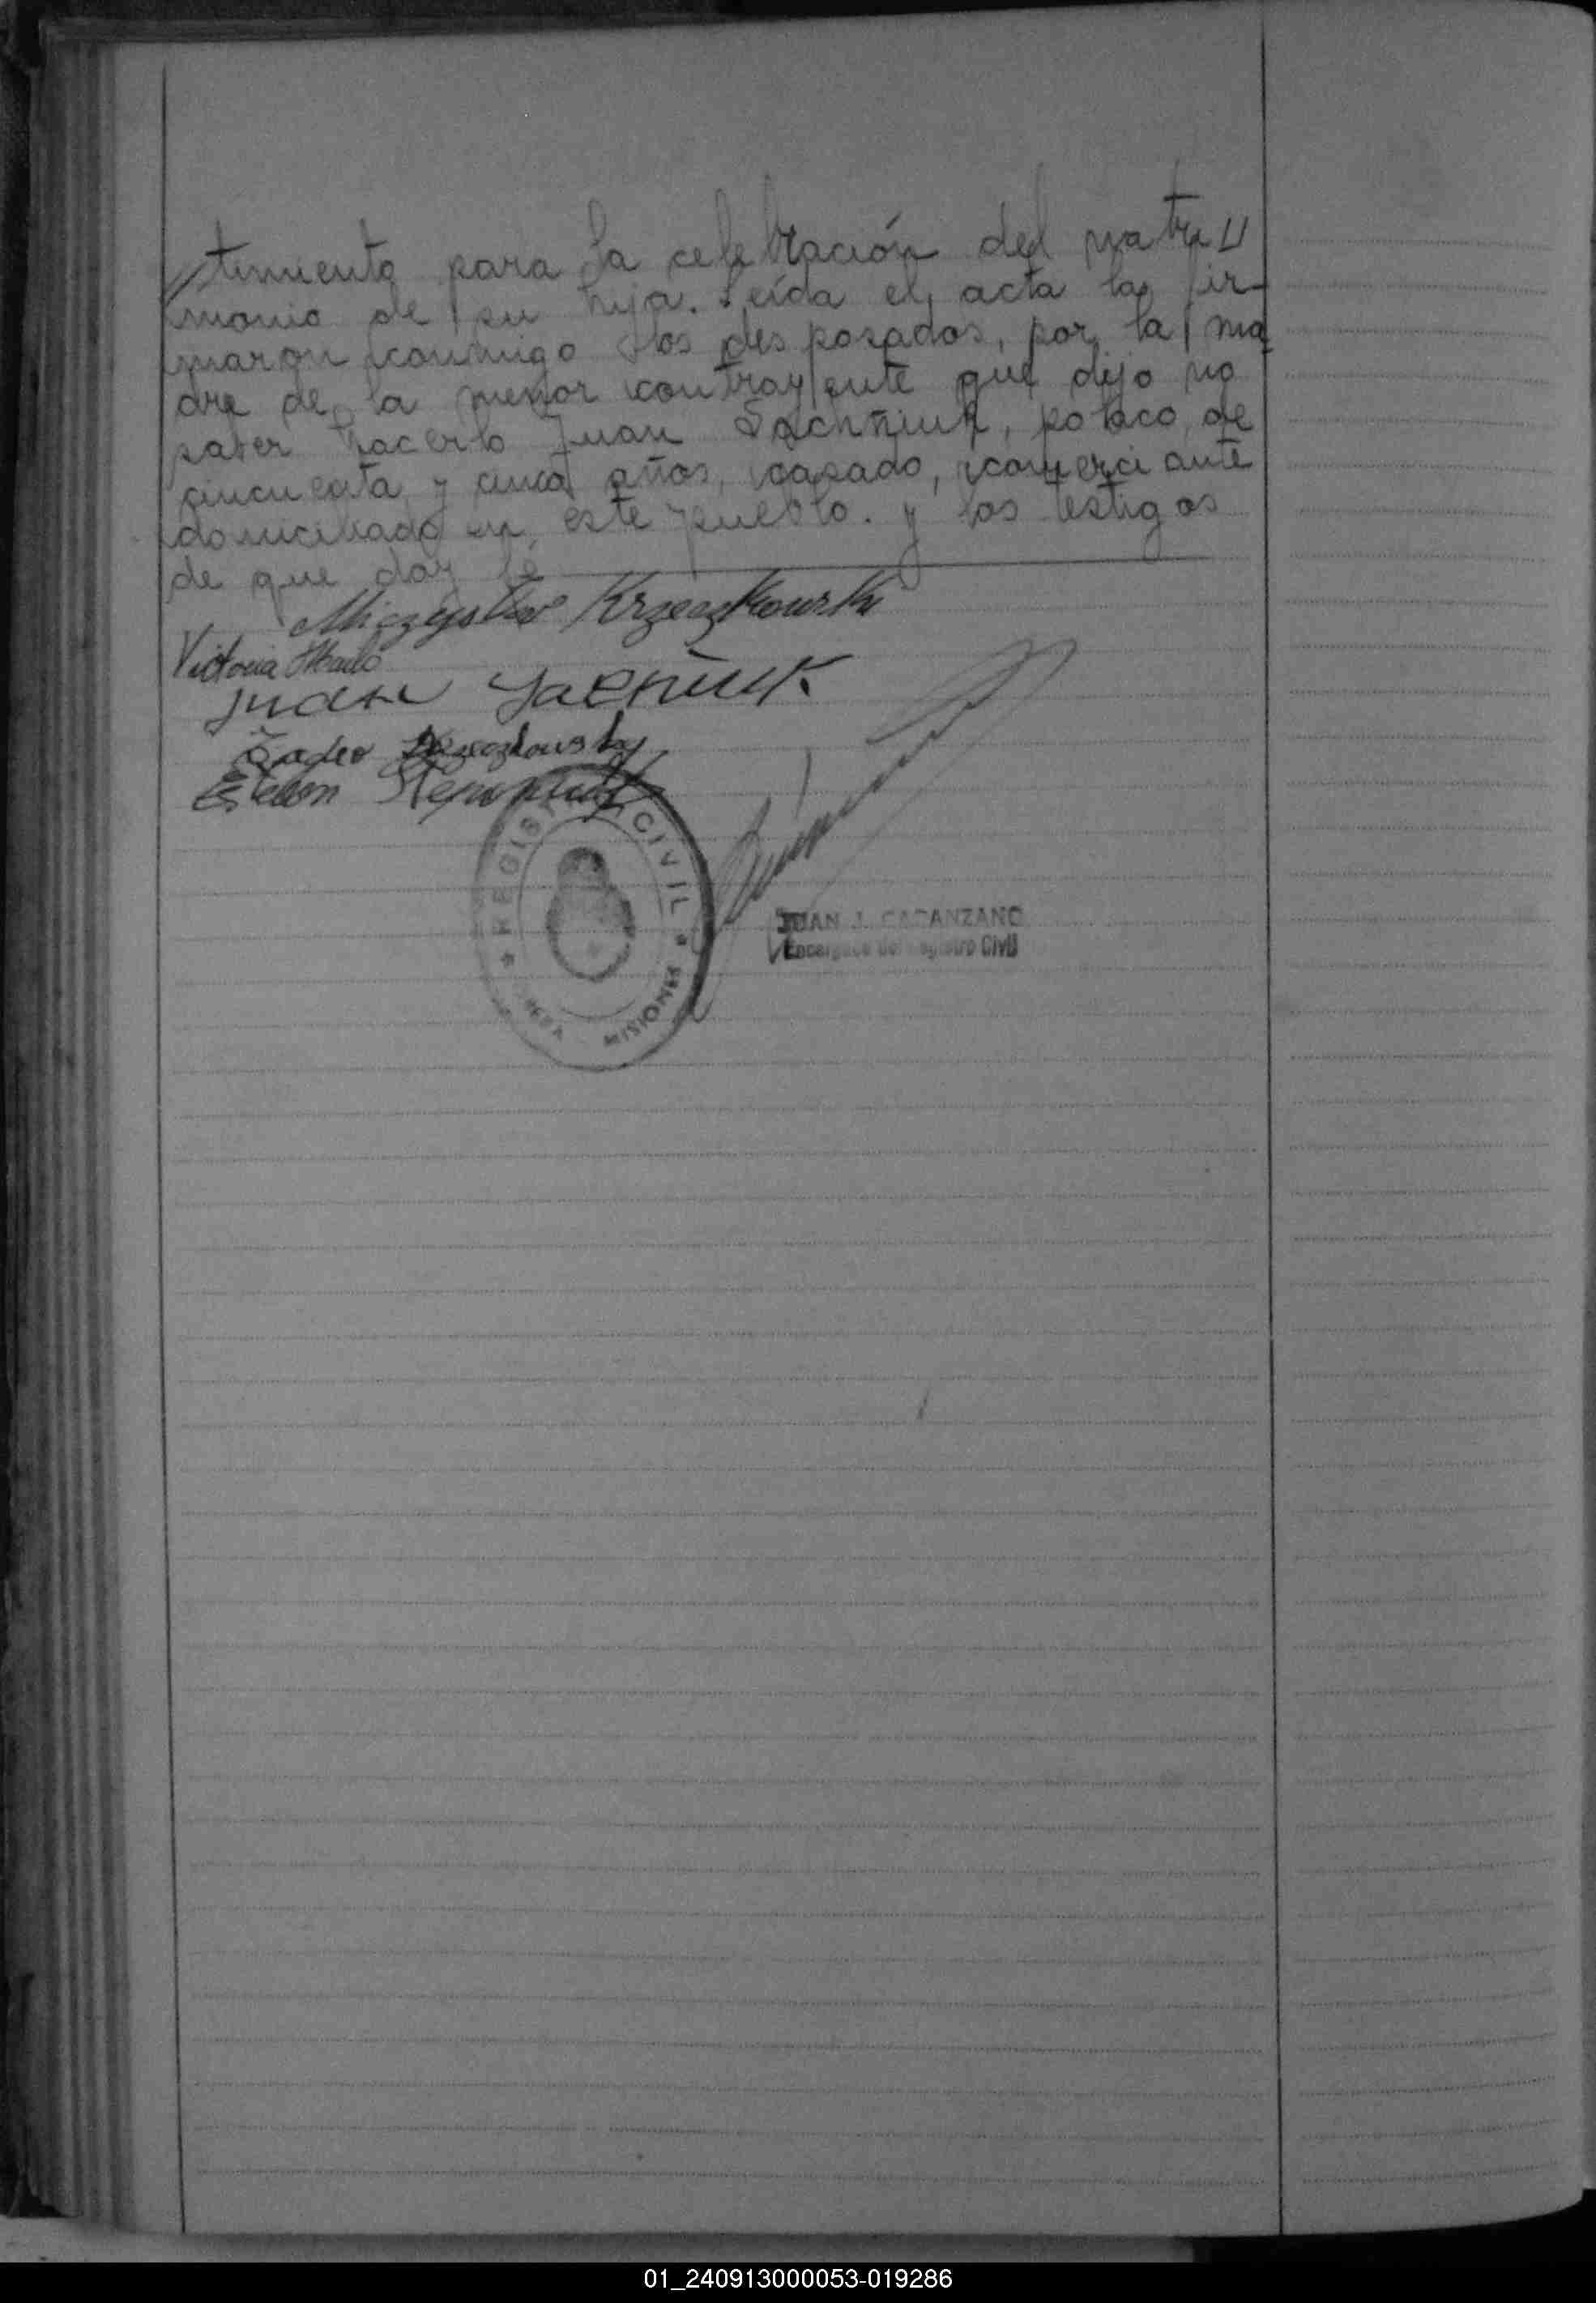 //timiento para la celebración del matri//
monio de su hija. Leída el acta la fir-
maron conmigo los desposados, por la ma-
dre de la menor contrayente que dijo no
saber hacerlo Juan Sachñiuk, polaco, de
cincuenta y cinco años, casado, comerciante
domiciliado en este pueblo. y los testigos
de que doy fé
Mieczyslaw Krzeczkowski
Victoria
Juan Sacñiuk.
Tadeo
Esteban
REGISTRO CIVIL
MISIONES
JUAN J. CATANZANO
Encargado del Registro Civil
01_240913000053-019286